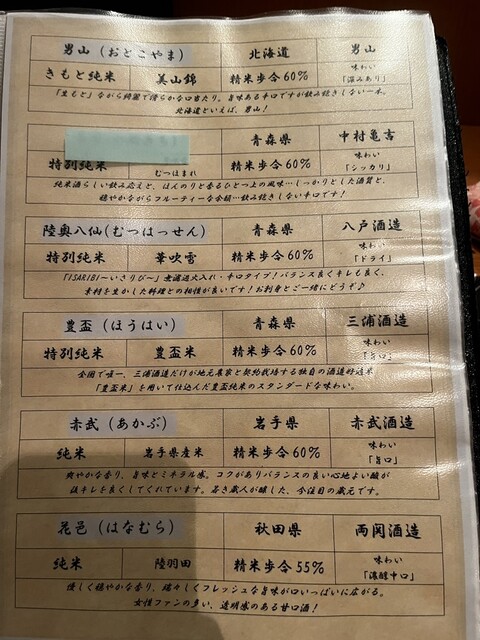 男山（おとこやま） 北海道 男山
きもと純米 美山錦 精米歩合60% 味わい「深みあり」
「生もと」ながら綺麗で滑らかな口当たり。旨味ある辛口ですが飲み飽きしない一本。
北海道といえば、男山！
青森県 中村亀吉
特別純米 むつほまれ 精米歩合60% 味わい「シッカリ」
純米酒らしい飲み応えと、ほんのりと香るひとつ上の風味…しっかりとした酒質と、
穏やかながらフルーティーな余韻…飲み飽きしない辛口です！
陸奥八仙（むつはっせん） 青森県 八戸酒造
特別純米 華吹雪 精米歩合60% 味わい「ドライ」
「ISARIBI～いさりび～」無濾過火入れ・辛口タイプ！バランス良くキレも良く、
素材を生かした料理との相性が良いです！お刺身とご一緒にどうぞ♪
豊盃（ほうはい） 青森県 三浦酒造
特別純米 豊盃米 精米歩合60% 味わい「旨口」
全国で唯一、三浦酒造だけが地元農家と契約栽培する独自の酒造好適米
「豊盃米」を用いて仕込んだ豊盃純米のスタンダードな味わい。
赤武（あかぶ） 岩手県 赤武酒造
純米 岩手県産米 精米歩合60% 味わい「旨口」
爽やかな香り、旨味とミネラル感。コクがありバランスの良い心地よい酸が
後キレを良くしてくれています。若き蔵人が醸した、今注目の蔵元です。
花邑（はなむら） 秋田県 両関酒造
純米 陸羽田 精米歩合55% 味わい「濃醇中口」
優しく穏やかな香り、瑞々しくフレッシュな旨味が口いっぱいに広がる。
女性ファンの多い、透明感のある甘口酒！